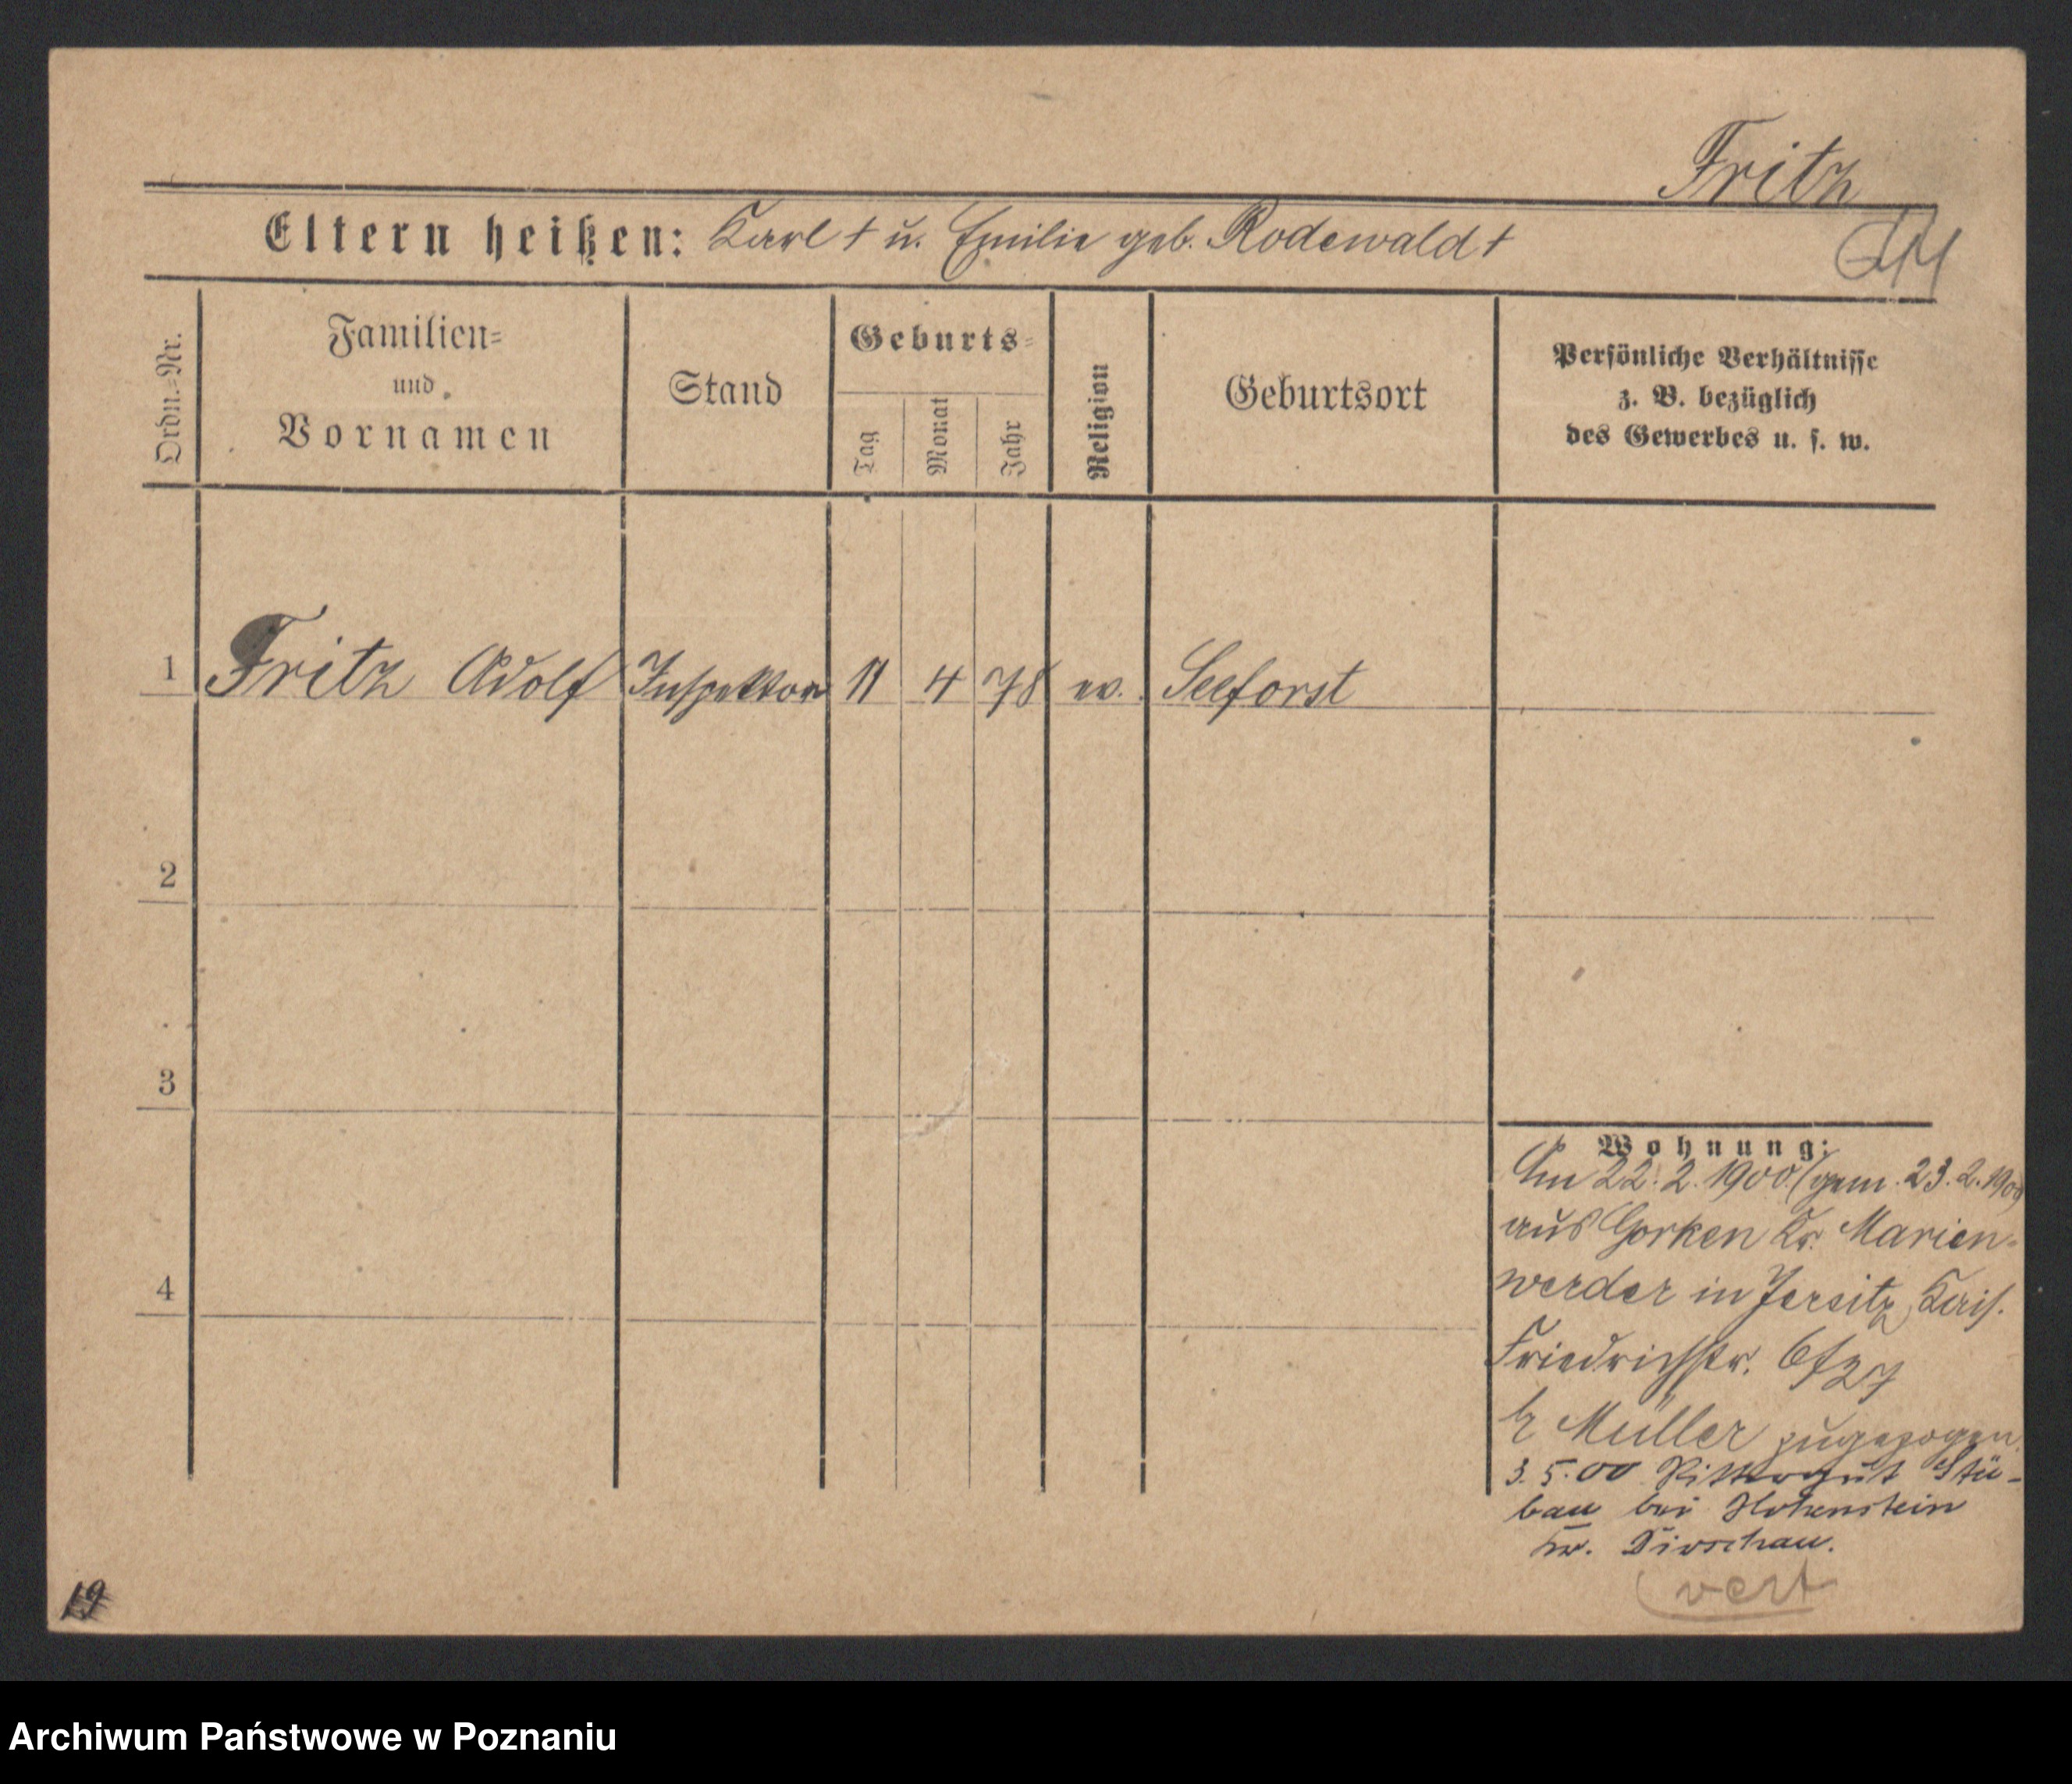 Fritz
Eltern heißen: Karl † u. Emilie geb. Rodewald †
Ordn.-Nr.
Familien-
und
Vornamen
Stand
Geburts-
Tag
Monat
Jahr
Religion
Geburtsort
Persönliche Verhältnisse
z. B. bezüglich
des Gewerbes u. s. w.
1 Fritz Adolf Inspektor 11 4 78 ev. Seeforst
2
3
4
Wohnung:
Am 22. 2. 1900. (gem. 23. 2. 1900)
aus Gorken Kr. Marien-
werder in Jersitz, Kais.
Friedrichstr.
b Müller zugezogen.
3. 5. 00 Rittergut Stü-
bau bei Hohenstein
Kr. Dirschau.
vert
19
Archiwum Państwowe w Poznaniu